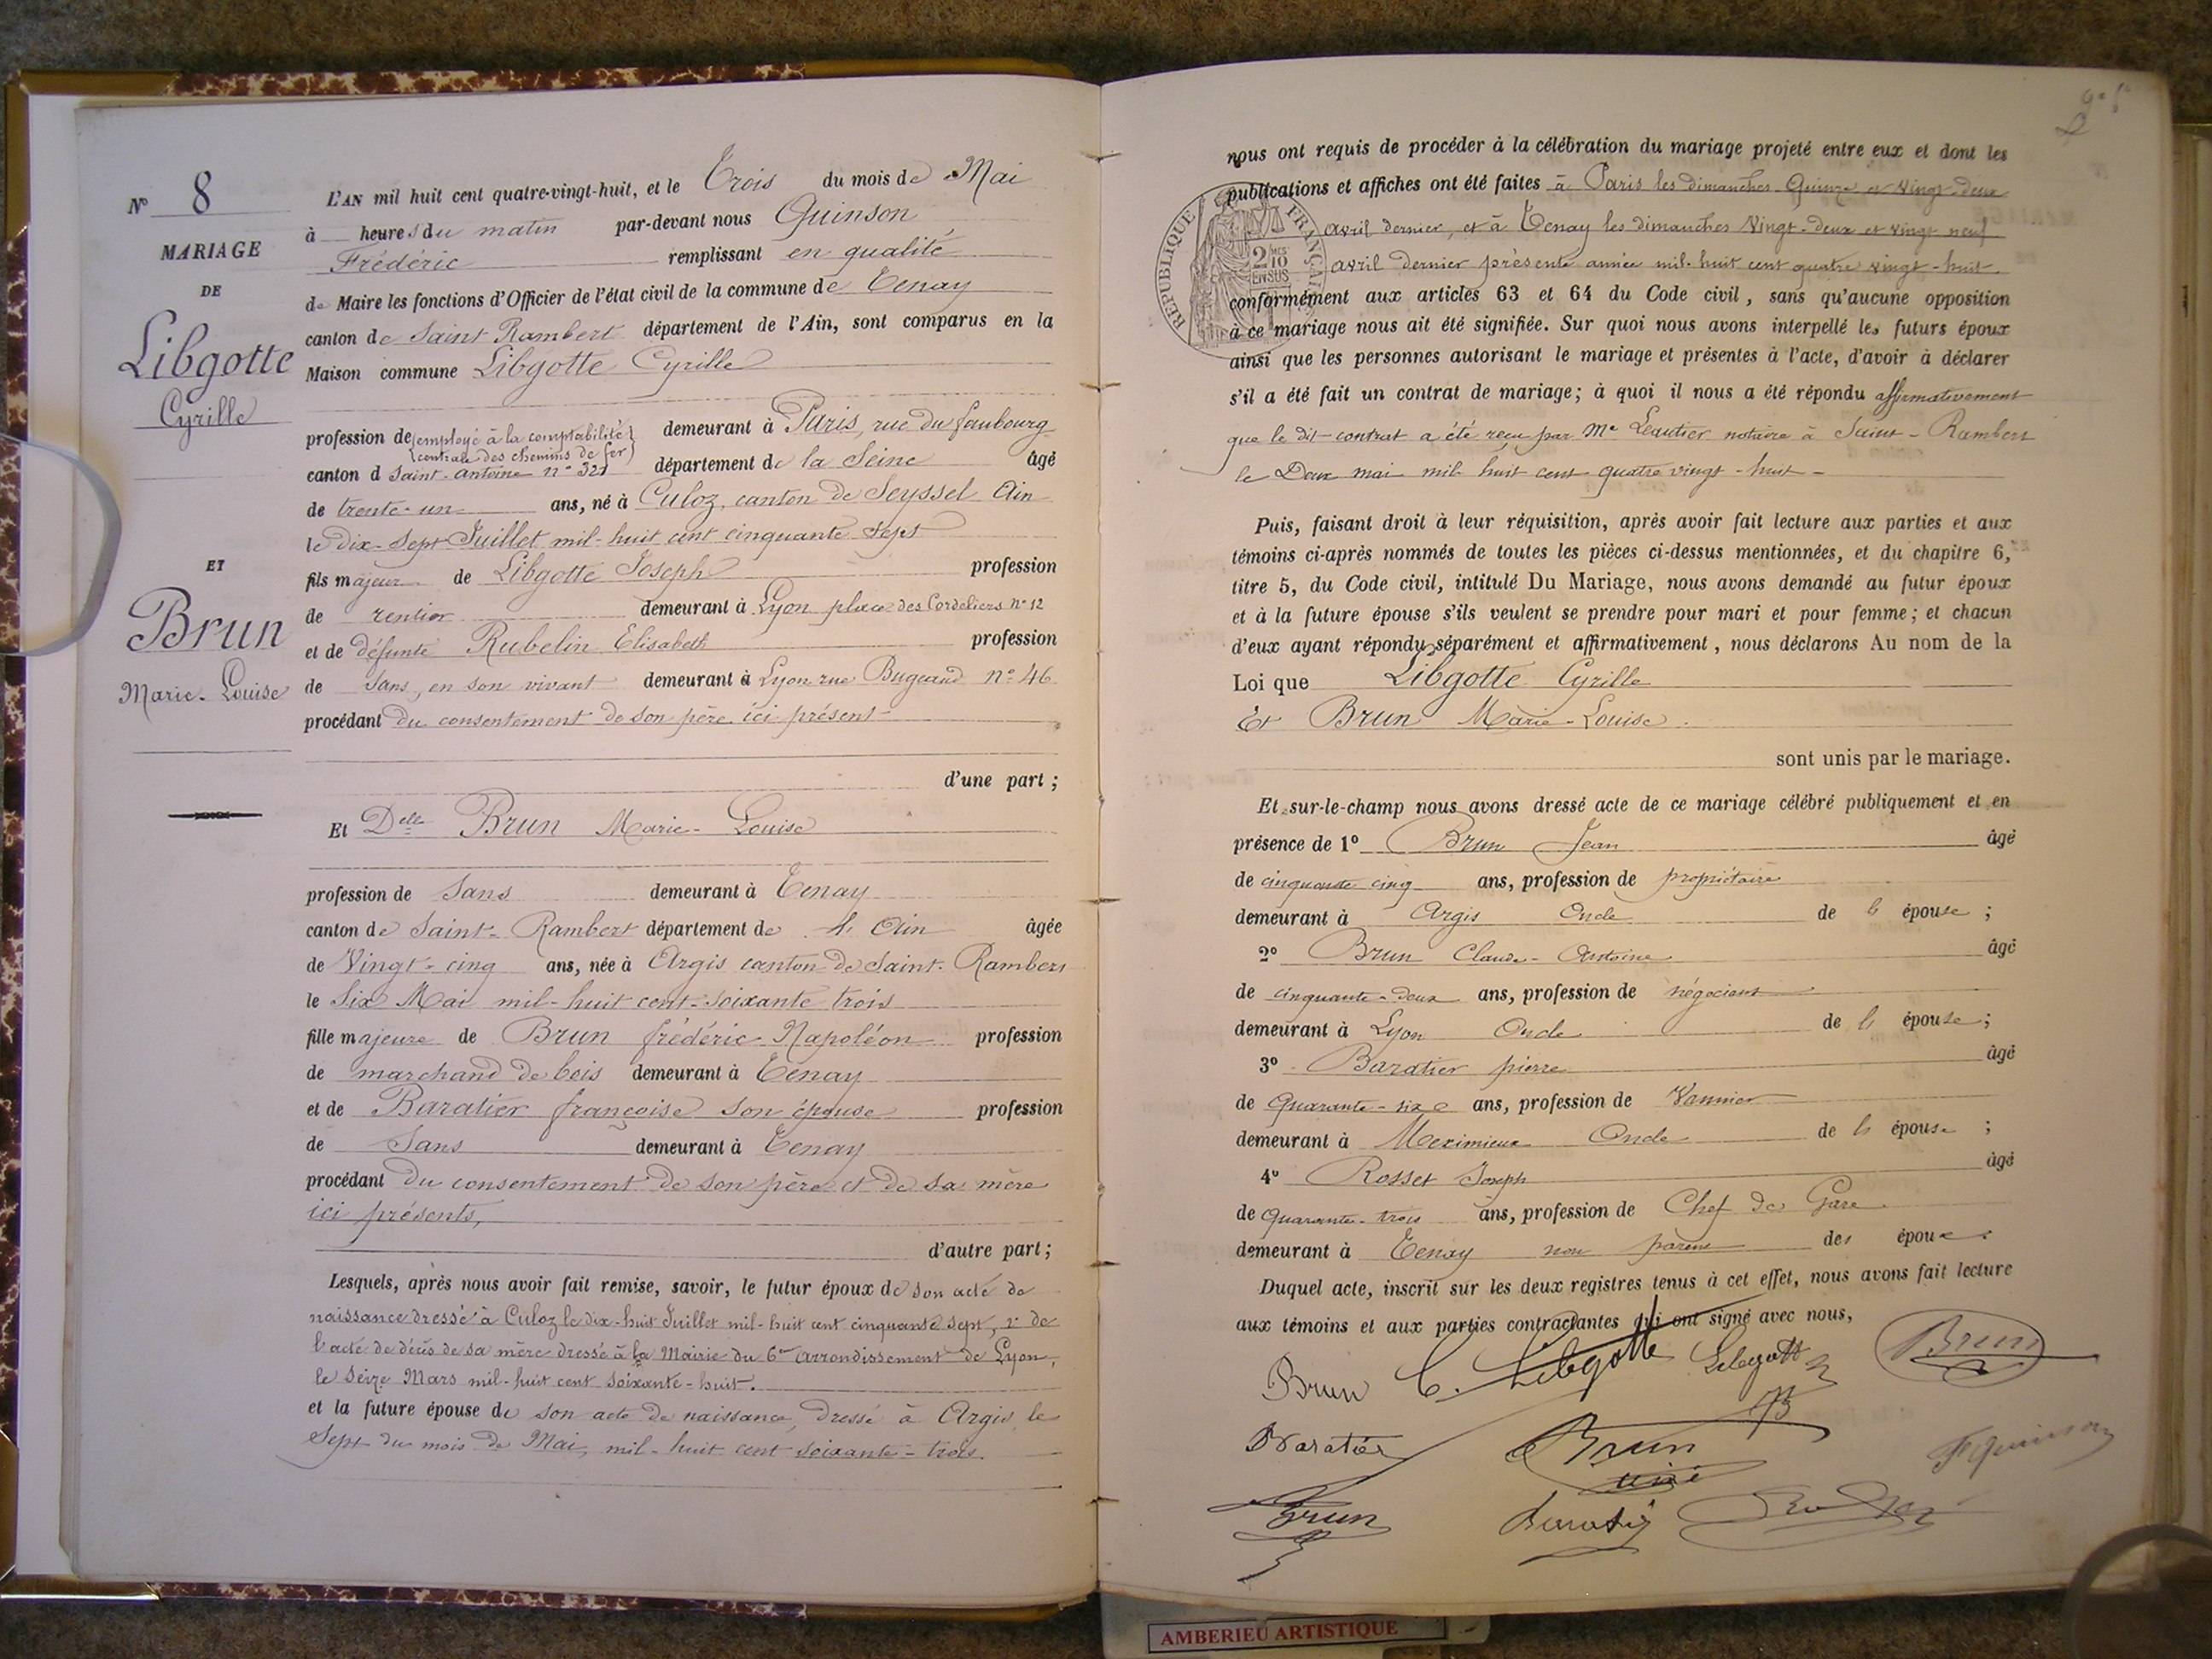 N° 8
MARIAGE
DE
Libgotte
Cyrille
ET
Brun
Marie-Louise
L'AN mil huit cent quatre-vingt-huit, et le Trois du mois de Mai
à heures du matin par-devant nous Quinson
Frédéric remplissant en qualité
de Maire les fonctions d'Officier de l'état civil de la commune de Tenay
canton de Saint Rambert département de l'Ain, sont comparus en la
Maison commune Libgotte Cyrille
profession de (employé à la comptabilité
demeurant à Paris, rue du faubourg
centrale des chemins de fer)
canton d Saint-Antoine n° 321 département de la Seine âgé
de trente-un ans, né à Culoz, canton de Seyssel Ain
le dix-sept Juillet mil-huit cent cinquante sept
fils majeur de Libgotte Joseph profession
de rentier demeurant à Lyon place des Cordeliers n° 12
et de défunte Rubelin Elisabeth profession
de sans, en son vivant demeurant à Lyon rue Bugeaud n° 46
procédant du consentement de son père ici présent
d'une part ;
Et Delle Brun Marie-Louise
profession de Sans demeurant à Tenay
canton de Saint-Rambert département de l'Ain âgée
de Vingt-cinq ans, née à Argis canton de Saint-Rambert
le Six Mai mil-huit cent-soixante trois
fille majeure de Brun frédéric-Napoléon profession
de marchand de bois demeurant à Tenay
et de Baratier françoise son épouse profession
de Sans demeurant à Tenay
procédant du consentement de son père et de sa mère
ici présents,
d'autre part ;
Lesquels, après nous avoir fait remise, savoir, le futur époux de son acte de
naissance dressé à Culoz le dix-huit Juillet mil-huit cent cinquante sept, 2° de
l'acte de décès de sa mère dressé à la Mairie du 6me arrondissement de Lyon,
le seize Mars mil-huit cent soixante-huit.
et la future épouse de son acte de naissance, dressé à Argis le
Sept du mois de Mai, mil-huit cent soixante-trois.
nous ont requis de procéder à la célébration du mariage projeté entre eux et dont les
publications et affiches ont été faites à Paris les dimanches Quinze et vingt-deux
avril dernier, et à Tenay les dimanches Vingt-deux et vingt neuf
avril dernier présente année mil-huit cent quatre vingt-huit.
conformément aux articles 63 et 64 du Code civil, sans qu'aucune opposition
à ce mariage nous ait été signifiée. Sur quoi nous avons interpellé les futurs époux
ainsi que les personnes autorisant le mariage et présentes à l'acte, d'avoir à déclarer
s'il a été fait un contrat de mariage; à quoi il nous a été répondu affirmativement
que le dit contrat a été reçu par Me Leautier notaire à Saint-Rambert
le Deux mai mil huit cent quatre vingt-huit
RÉPUBLIQUE FRANÇAISE
2/10
EN SUS
Puis, faisant droit à leur réquisition, après avoir fait lecture aux parties et aux
témoins ci-après nommés de toutes les pièces ci-dessus mentionnées, et du chapitre 6,
titre 5, du Code civil, intitulé Du Mariage, nous avons demandé au futur époux
et à la future épouse s'ils veulent se prendre pour mari et pour femme; et chacun
d'eux ayant répondu séparément et affirmativement, nous déclarons Au nom de la
Loi que Libgotte Cyrille
Et Brun Marie-Louise.
sont unis par le mariage.
Et sur-le-champ nous avons dressé acte de ce mariage célébré publiquement et en
présence de 1° Brun Jean âgé
de cinquante cinq ans, profession de propriétaire
demeurant à Argis Oncle de l' épouse ;
2° Brun Claude-Antoine âgé
de cinquante-deux ans, profession de négociant
demeurant à Lyon Oncle de l' épouse ;
3° Baratier pierre âgé
de Quarante-six ans, profession de Vannier
demeurant à Meximieux Oncle de l' épouse ;
4° Rosset Joseph âgé
de quarante-trois ans, profession de Chef de Gare
demeurant à Tenay non parent des époux.
Duquel acte, inscrit sur les deux registres tenus à cet effet, nous avons fait lecture
aux témoins et aux parties contractantes qui ont signé avec nous,
Brun C. Libgotte Libgotte Brun
Baratier Brun FQuinson
Brun Baratier
AMBERIEU ARTISTIQUE